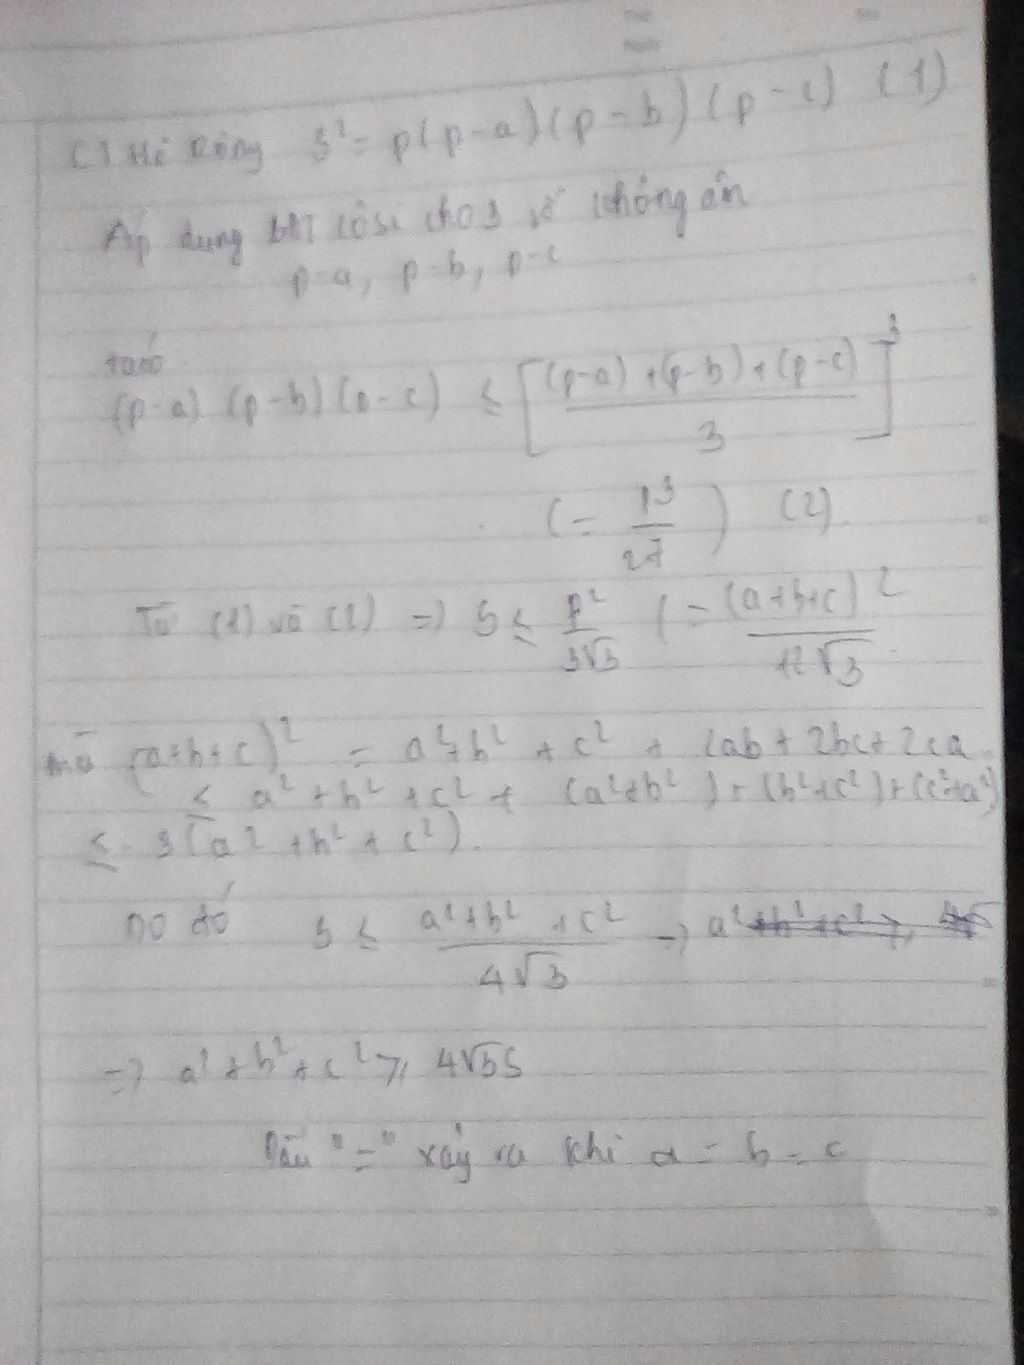 CT Hê Rông S² = p(p-a)(p-b)(p-c) (1)
Áp dụng BĐT Côsi cho 3 số không âm
p-a, p-b, p-c
ta có
(p-a)(p-b)(p-c) ≤ [((p-a)+(p-b)+(p-c))/3]³
(= p³/27) (2).
Từ (1) và (2) => S ≤ p²/3√3 (= (a+b+c)²/12√3
mà (a+b+c)² = a²+b² + c² + 2ab + 2bc + 2ca
≤ a² + b² + c² + (a²+b²) + (b²+c²) + (c²+a²)
≤ 3(a² + b² + c²).
Do đó S ≤ (a²+b²+c²)/4√3 → a²
=> a² + b² + c² ≥ 4√3S
Dấu "=" xảy ra khi a = b = c